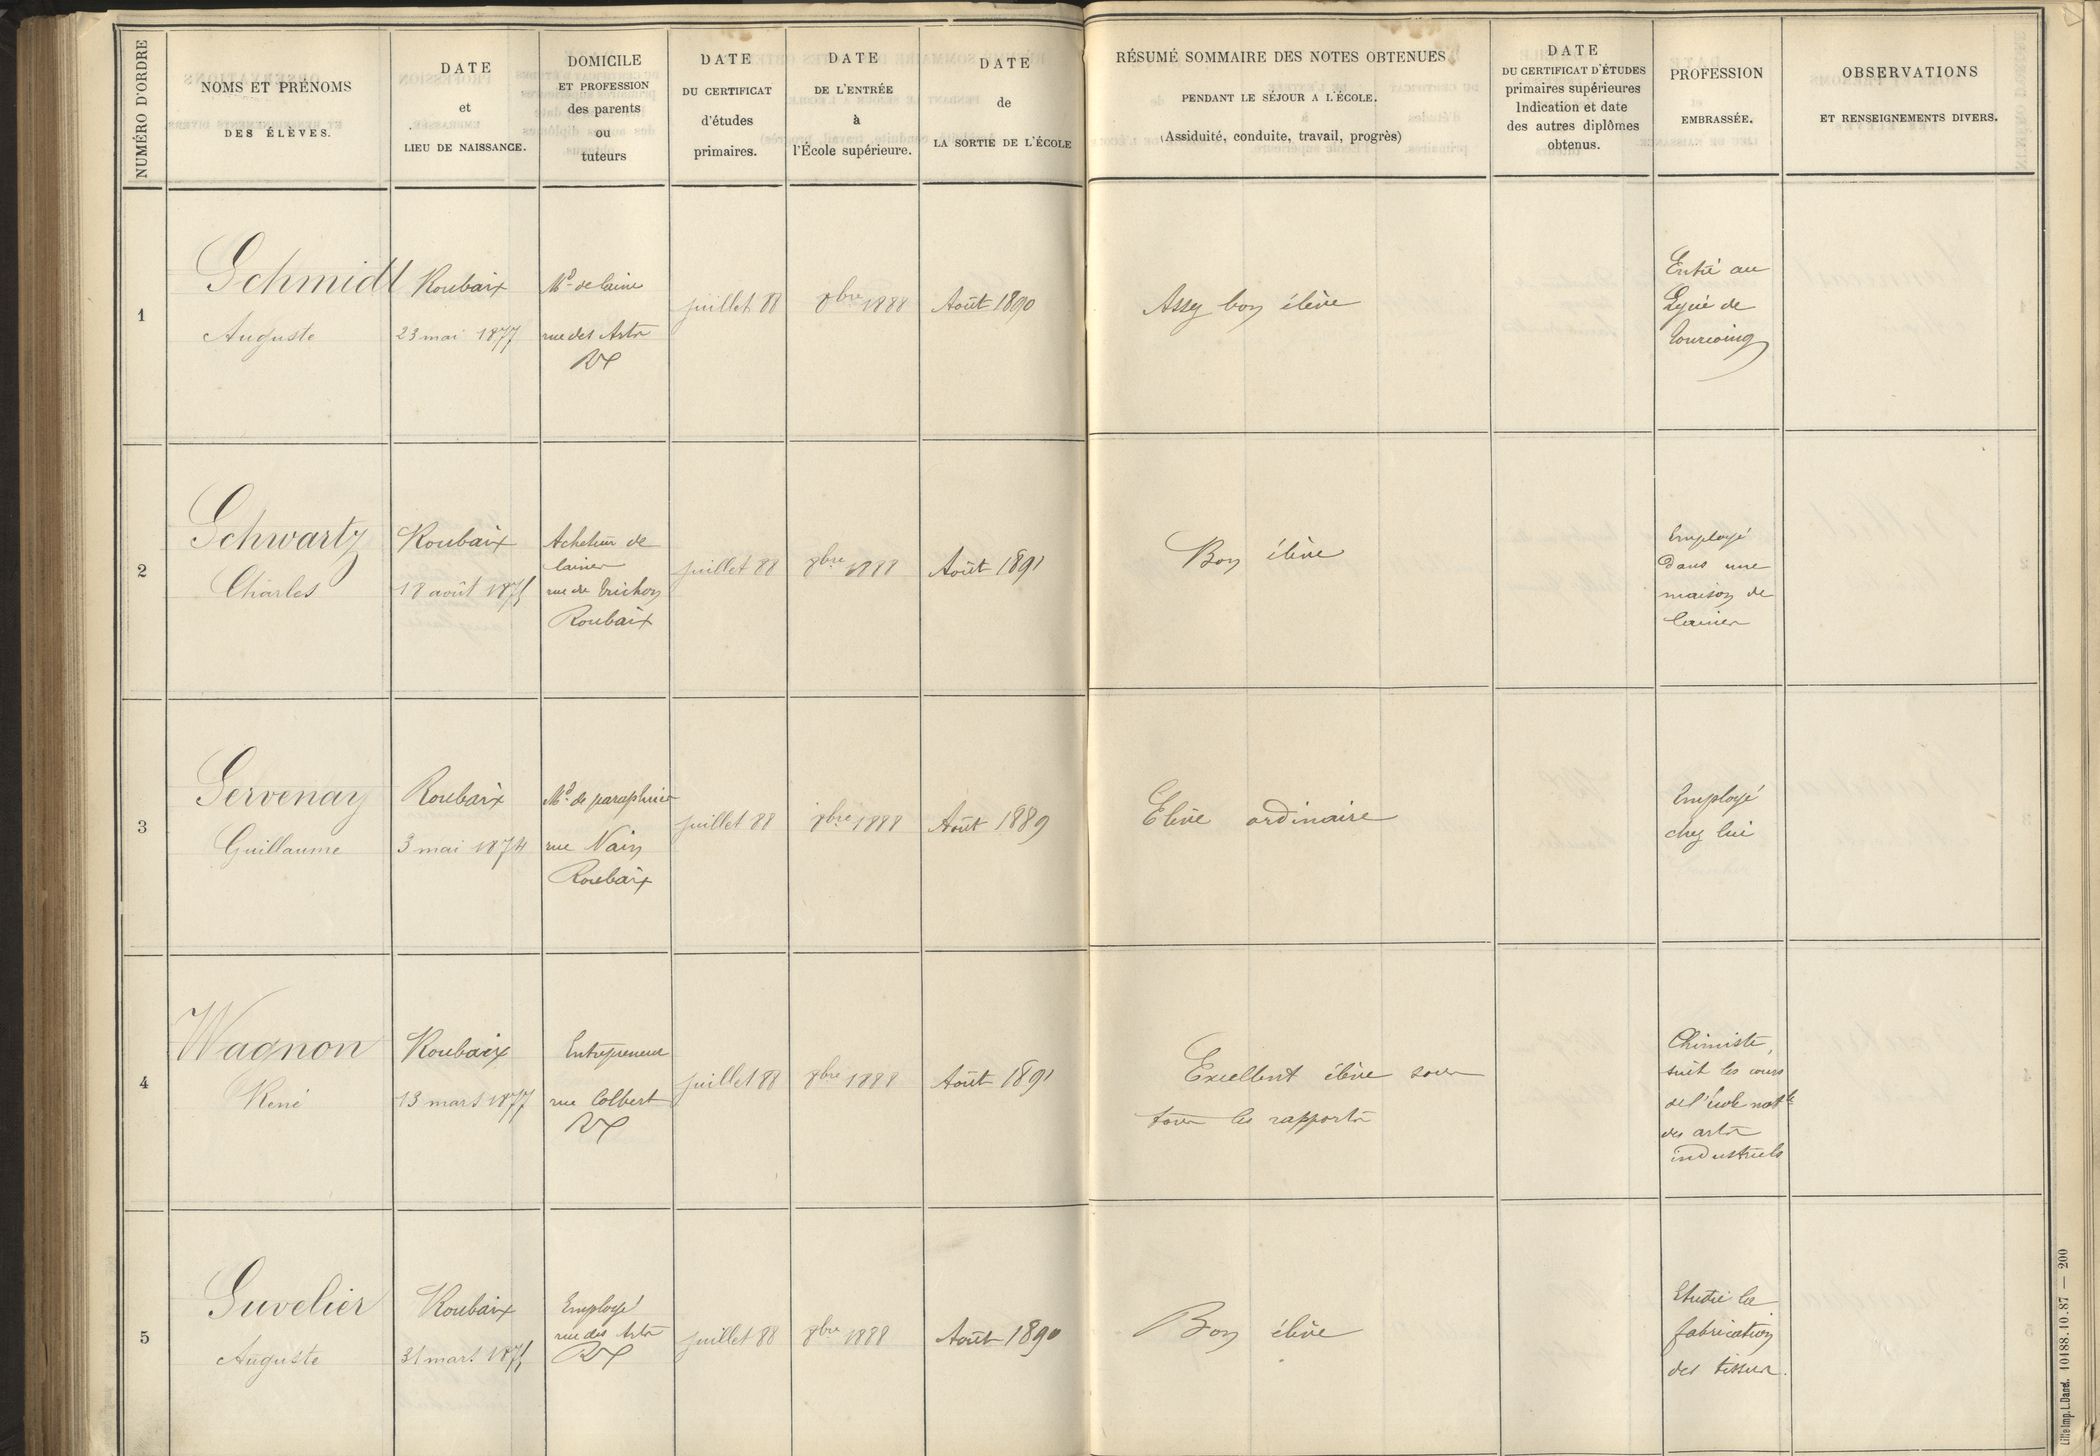 NUMÉRO D'ORDRE
NOMS ET PRÉNOMS
DES ÉLÈVES.
DATE
et
LIEU DE NAISSANCE.
DOMICILE
ET PROFESSION
des parents
ou
tuteurs
DATE
DU CERTIFICAT
d'études
primaires.
DATE
DE L'ENTRÉE
à
l'École supérieure.
DATE
de
LA SORTIE DE L'ÉCOLE
RÉSUMÉ SOMMAIRE DES NOTES OBTENUES
PENDANT LE SÉJOUR A L'ÉCOLE.
(Assiduité, conduite, travail, progrès)
DATE
DU CERTIFICAT D'ÉTUDES
primaires supérieures
Indication et date
des autres diplômes
obtenus.
PROFESSION
EMBRASSÉE.
OBSERVATIONS
ET RENSEIGNEMENTS DIVERS.
1
Schmidt
Auguste
Roubaix
23 mai 1877
Md de laine
rue des Arts
Rx
juillet 88
8bre 1888
Août 1890
Assez bon élève
Entré au
Lycée de
Tourcoing
2
Schwartz
Charles
Roubaix
18 août 1875
Acheteur de
laines
rue de Trichon
Roubaix
juillet 88
8bre 1888
Août 1891
Bon élève
Employé
dans une
maison de
laines
3
Servenay
Guillaume
Roubaix
3 mai 1874
Md de parapluies
rue Nain
Roubaix
juillet 88
8bre 1888
Août 1889
Elève ordinaire
Employé
chez lui
4
Wagnon
René
Roubaix
13 mars 1877
Entrepreneur
rue Colbert
Rx
juillet 88
8bre 1888
Août 1891
Excellent élève sous
tous les rapports
Chimiste,
suit les cours
de l'école natle
des arts
industriels
5
Cuvelier
Auguste
Roubaix
31 mars 1875
Employé
rue des Arts
Rx
juillet 88
8bre 1888
Août 1890
Bon élève
Etudie la
fabrication
des tissus.
Lille Imp. L. Danel. 10188.10.87 — 200